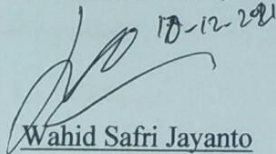 18-12-2021
Wahid Safri Jayanto